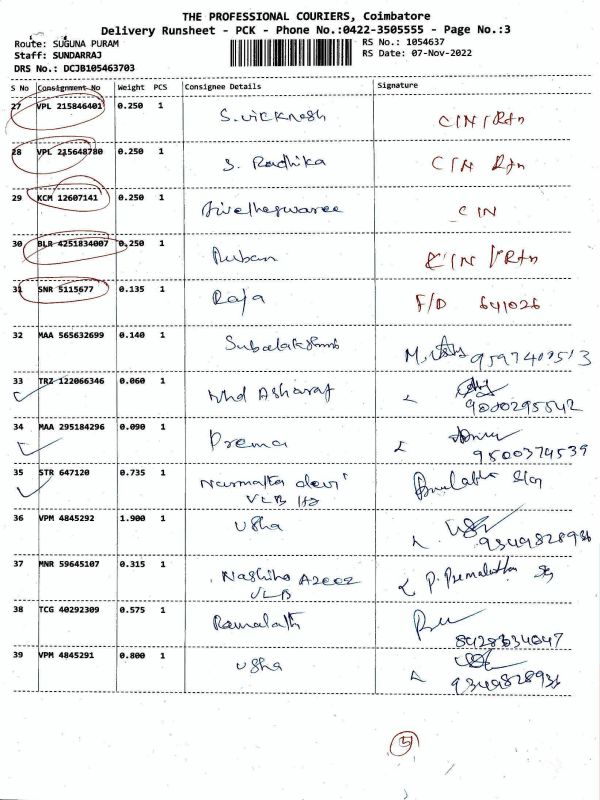 THE PROFESSIONAL COURIERS, Coimbatore
Delivery Runsheet - PCK - Phone No.:0422-3505555 - Page No.:3
Route: SUGUNA PURAM RS No.: 1054637
Staff: SUNDARRAJ RS Date: 07-Nov-2022
DRS No.: DCJB105463703
S No Consignment No Weight PCS Consignee Details Signature
27 VPL 215846401 0.250 1 S. Vicknesh C/N/Rtn
28 VPL 215648780 0.250 1 S. Radhika C/N Rtn
29 KCM 12607141 0.250 1 C/N
30 BLR 4251834007 0.250 1 Ruban C/N/Rtn
31 SNR 5115677 0.135 1 Raja F/D 641026
32 MAA 565632699 0.140 1
33 TRZ 122066346 0.060 1 Mhd Asharaf
9000295542
34 MAA 295184296 0.090 1 Prema
9500374539
35 STR 647120 0.735 1 devi
VLB
36 VPM 4845292 1.900 1 Usha
9349828936
37 MNR 59645107 0.315 1 Nashiha Azeez P. Premalatha
VLB
38 TCG 40292309 0.575 1 Ramalath
8428634047
39 VPM 4845291 0.800 1 Usha
9349828936
5